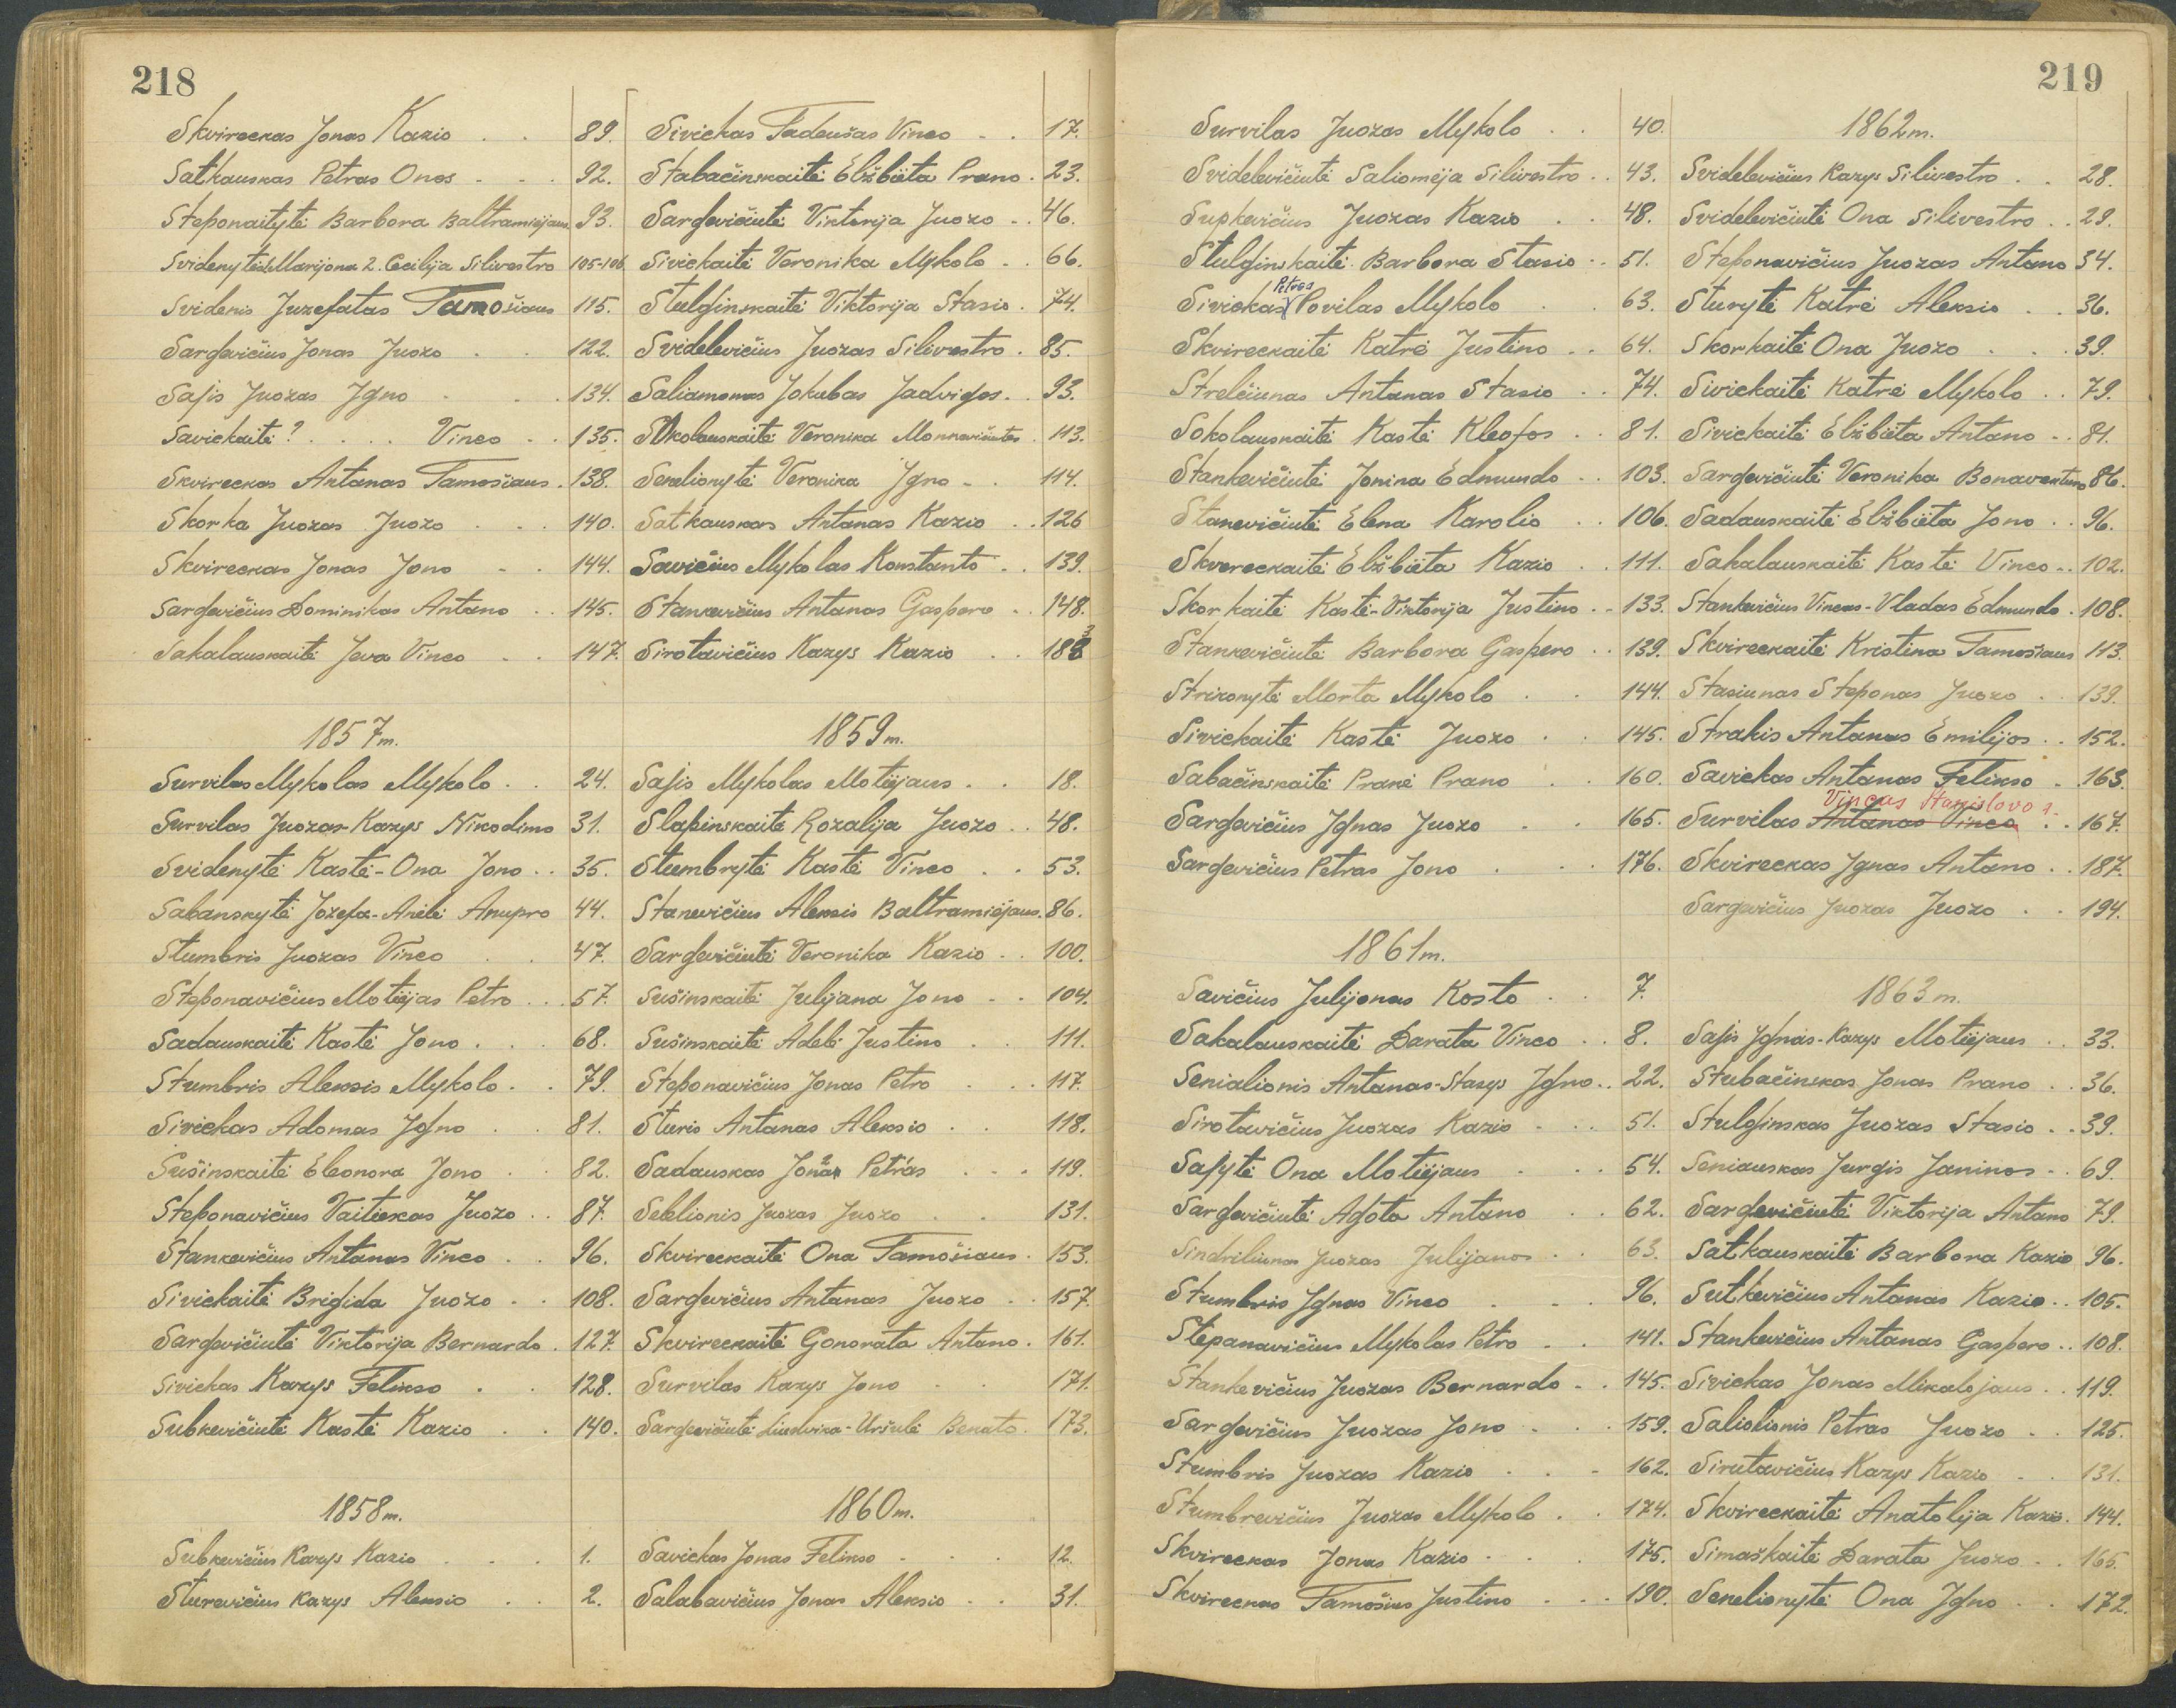 218
Skvireckas Jonas Kazio . . 89.
Satkauskas Petras Onos - - . 92.
Steponaitytė Barbora Baltramiejaus 93.
Svidenytės 1. Marijona 2. Cecilija Silivestro 105-106
Svidenis Juzefatas Tamošiaus 115.
Sargevičius Jonas Juozo . . 122.
Sajis Juozas Igno . . . 134.
Savickaitė ? . . . . Vinco . . 135.
Skvireckas Antanas Tamošiaus . 138.
Skorka Juozas Juozo . . . 140.
Skvireckas Jonas Jono - . 144.
Sargevičius Dominikas Antano . . 145.
Sakalauskaitė Jeva Vinco . . 147.
1857 m.
Survilas Mykolas Mykolo . . 24.
Survilas Juozas-Kazys Nikodimo 31.
Svidenytė Kastė-Ona Jono . . 35.
Sabanskytė Jozefa-Anelė Anupro 44.
Stumbris Juozas Vinco . . 47.
Steponavičius Motiejas Petro . . . 57.
Sadauskaitė Kastė Jono . . . 68.
Stumbris Aleksis Mykolo . . 79.
Sivickas Adomas Igno . . 81.
Sušinskaitė Eleonora Jono . . 82.
Steponavičius Vaitiekas Juozo . . 87.
Stankevičius Antanas Vinco . . 96.
Sivickaitė Brigida Juozo . . 108.
Sargevičiutė Viktorija Bernardo . 127.
Sivickas Kazys Felikso . . 128.
Subkevičiutė Kastė Kazio . . 140.
1858 m.
Subkevičius Kazys Kazio . . . 1.
Sturevičius Kazys Aleksio . . 2.
Sivickas Tadeušas Vinco - . 17.
Stabačinskaitė Elžbieta Prano . 23.
Sargevičiutė Viktorija Juozo . . 46.
Sivickaitė Veronika Mykolo - . 66.
Stulginskaitė Viktorija Stasio . 74.
Svidelevičius Juozas Silivestro . 85.
Saliamonas Jokubas Jadvigos . . 93.
Sokolauskaitė Veronika 113.
Senelionytė Veronika Igno - . 114.
Satkauskas Antanas Kazio . . 126
Savičius Mykolas Konstanto . . 139.
Stankevičius Antanas Gaspero . . 148.
Sirotavičius Kazys Kazio . . 183
1859 m.
Sajis Mykolas Motiejaus . . 18.
Slapinskaitė Rozalija Juozo . . 48.
Stumbrytė Kastė Vinco . . 53.
Stanevičius Aleksis Baltramiejaus. 86.
Sargevičiutė Veronika Kazio . . 100.
Sušinskaitė Julijana Jono - . 104.
Sušinskaitė Adelė Justino . . 111.
Steponavičius Jonas Petro . . . 117.
Sturis Antanas Aleksio . . 118.
Sadauskas Jonas Petras . . . 119.
Seklionis Juozas Juozo . . 131.
Skvireckaitė Ona Tamošiaus . 153.
Sargevičius Antanas Juozo . . 157.
Skvireckaitė Gonorata Antano . 161.
Survilas Kazys Jono . . 171.
Sargevičiutė Liudvika-Uršulė Benato . 173.
1860 m.
Savickas Jonas Felikso . . . 12.
Salabavičius Jonas Aleksio . . 31.
219
Survilas Juozas Mykolo . . 40.
Svidelevičiutė Saliomėja Silivestro . . 43.
Supkevičius Juozas Kazio . . 48.
Stulginskaitė Barbora Stasio . . 51.
Petras
Sivickas Povilas Mykolo . . 63.
Skvireckaitė Katrė Justino . . 64.
Strelčiunas Antanas Stasio . . 74.
Sokolauskaitė Kastė Kleofos . . 81.
Stankevičiutė Jonina Edmundo . . 103.
Stanevičiutė Elena Karolio . . 106.
Skvereckaitė Elžbieta Kazio . . 111.
Skorkaitė Kastė-Viktorija Justino . . 133.
Stankevičiutė Barbora Gaspero . . 139.
Strizonytė Morta Mykolo . . 144.
Sivickaitė Kastė Juozo . . 145.
Sabačinskaitė Pranė Prano . . 160.
Sargevičius Ignas Juozo . . 165.
Sargevičius Petras Jono . . . 176.
1861 m.
Savičius Julijonas Kosto . . 7.
Sakalauskaitė Darata Vinco . . 8.
Senialionis Antanas-Stasys Igno . . 22.
Sirotavičius Juozas Kazio . . . 51.
Sajytė Ona Motiejaus . . . 54.
Sargevičiutė Agota Antano . . 62.
Sindriliunas Juozas Julijanos . . 63.
Stumbris Ignas Vinco . . . 96.
Stepanavičius Mykolas Petro . . 141.
Stankevičius Juozas Bernardo . . 145.
Sargevičius Juozas Jono . . . 159.
Stumbris Juozas Kazio . . . 162.
Stumbrevičius Juozas Mykolo . . 174.
Skvireckas Jonas Kazio . . . 175.
Skvireckas Tamošius Justino . . . 190.
1862 m.
Svidelevičius Kazys Silivestro . . 28.
Svidelevičiutė Ona Silivestro . . 29.
Steponavičius Juozas Antano 34.
Sturytė Katrė Aleksio . . 36.
Skorkaitė Ona Juozo . . . 39.
Sivickaitė Katrė Mykolo . . 79.
Sivickaitė Elžbieta Antano . . 81.
Sargevičiutė Veronika Bonaventuro 86.
Sadauskaitė Elžbieta Jono . . 96.
Sakalauskaitė Kastė Vinco . . 102.
Stankevičius Vincas-Vladas Edmundo . 108.
Skvireckaitė Kristina Tamošiaus 113.
Stasiunas Steponas Juozo . . 139.
Strakis Antanas Emilijos . . 152.
Savickas Antanas Felikso . 163.
Vincas Stanislovo
Survilas Antanas Vinco . . 167.
Skvireckas Ignas Antano . . 187.
Sargevičius Juozas Juozo . . 194.
1863 m.
Sajis Ignas-Kazys Motiejaus . . 33.
Stubačinskas Jonas Prano . . 36.
Stulginskas Juozas Stasio . . 39.
Seniauskas Jurgis Janinos . . 69.
Sargevičiutė Viktorija Antano 79.
Satkauskaitė Barbora Kazio 96.
Sutkevičius Antanas Kazio . . 105.
Stankevičius Antanas Gaspero . . 108.
Sivickas Jonas Mikalojaus . . 119.
Saliolionis Petras Juozo . . 125.
Sirutavičius Kazys Kazio . . 131.
Skvireckaitė Anatolija Kazio . 144.
Simaškaitė Darata Juozo . . 165.
Senelionytė Ona Igno . . 172.